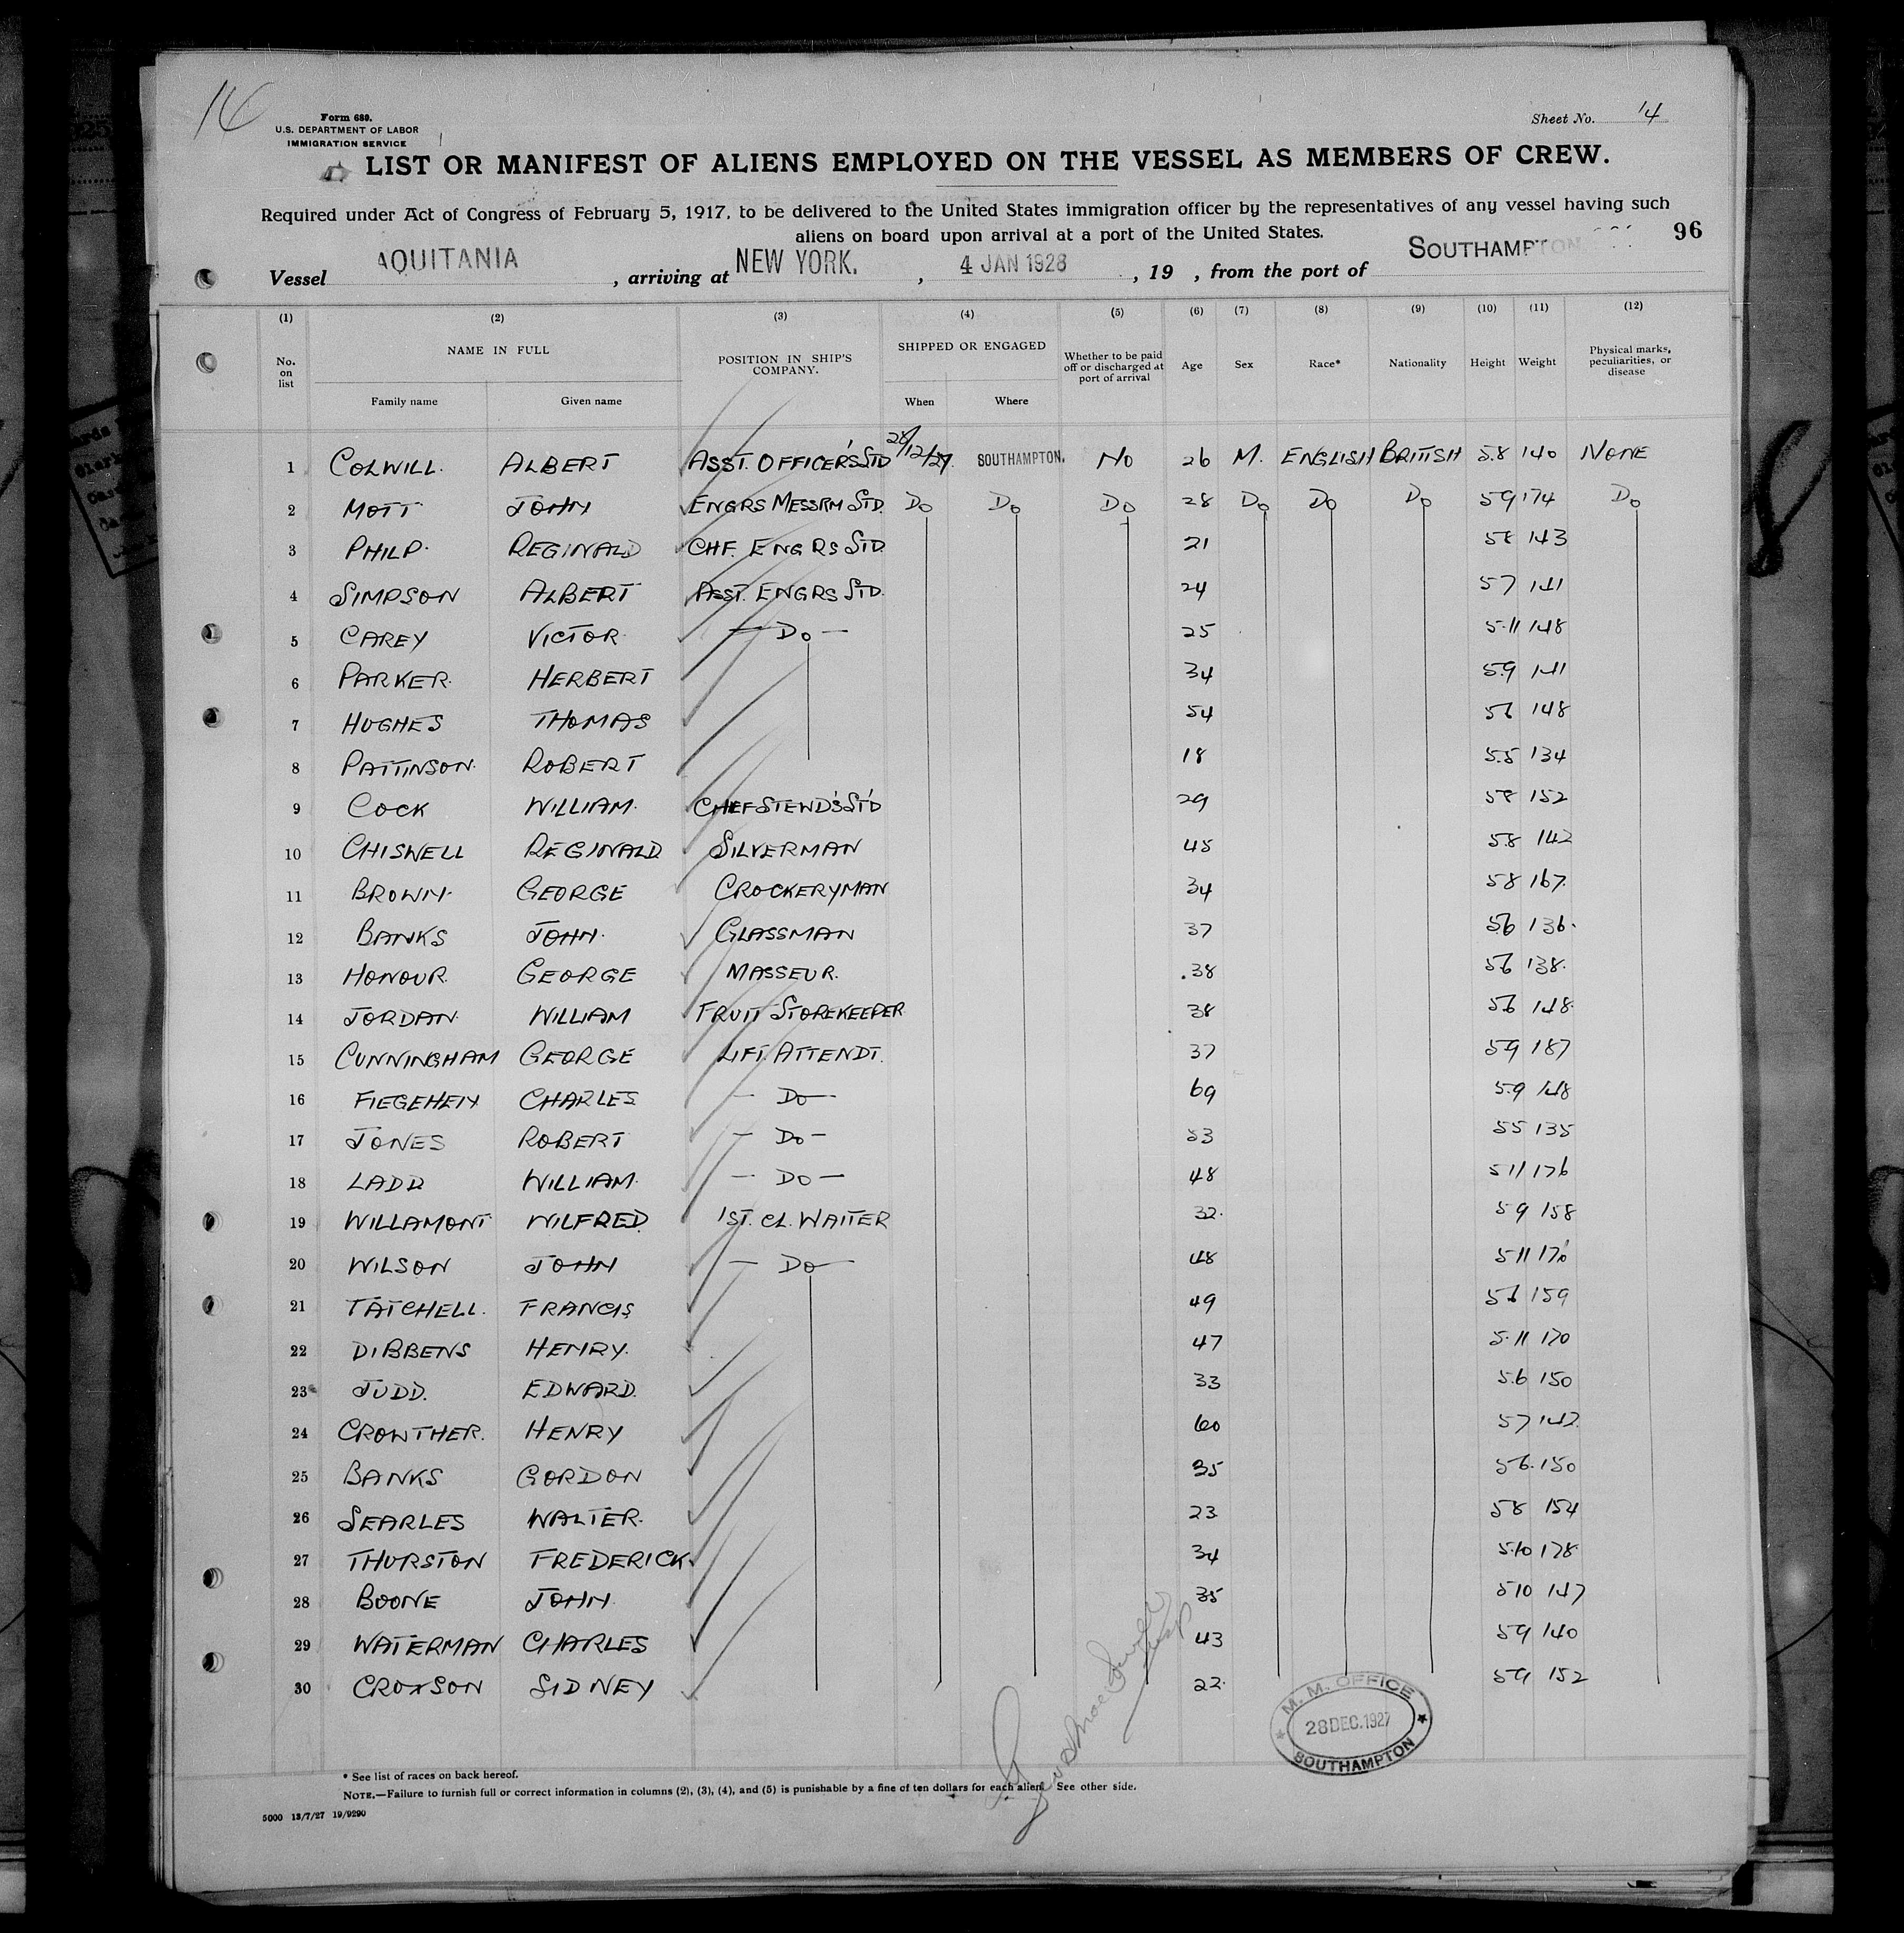 14
Form 680.
U.S. DEPARTMENT OF LABOR
IMMIGRATION SERVICE
Sheet No. 14
LIST OR MANIFEST OF ALIENS EMPLOYED ON THE VESSEL AS MEMBERS OF CREW.
Required under Act of Congress of February 5, 1917, to be delivered to the United States immigration officer by the representatives of any vessel having such
aliens on board upon arrival at a port of the United States.
96
Vessel AQUITANIA , arriving at NEW YORK. , 4 JAN 1928 , 19 , from the port of SOUTHAMPTON
(1) (2) (3) (4) (5) (6) (7) (8) (9) (10) (11) (12)
No. on list NAME IN FULL Family name Given name POSITION IN SHIP'S COMPANY. SHIPPED OR ENGAGED When Where Whether to be paid off or discharged at port of arrival Age Sex Race* Nationality Height Weight Physical marks, peculiarities, or disease
1 COLWILL. ALBERT ASST. OFFICER'S STD 28/12/27. SOUTHAMPTON. No 26 M. ENGLISH BRITISH 5.8 140 NONE
2 MOTT JOHN ENGRS MESSRM STD. Do Do Do 28 Do Do Do 59 174 Do
3 PHILP. REGINALD CHF. ENGRS STD 21 58 143
4 SIMPSON ALBERT ASST. ENGRS STD. 24 57 141
5 CAREY VICTOR. — Do — 25 5.11 148
6 PARKER. HERBERT 34 5.9 141
7 HUGHES THOMAS 54 56 148
8 PATTINSON. ROBERT 18 5.5 134
9 COCK WILLIAM. CHEF STEWD'S ST'D 29 58 152
10 CHISWELL REGINALD SILVERMAN 45 58 142
11 BROWN. GEORGE CROCKERYMAN 34 58 167.
12 BANKS JOHN. GLASSMAN 37 56 136.
13 HONOUR. GEORGE MASSEUR. 38 56 138.
14 JORDAN. WILLIAM FRUIT STOREKEEPER 38 56 148.
15 CUNNINGHAM GEORGE LIFT. ATTENDT. 37 59 187
16 CHARLES — Do — 69 5.9 148
17 JONES ROBERT — Do — 53 55 135
18 LADD WILLIAM. — Do — 48 5 11 176
19 WILLAMONT WILFRED 1ST. CL. WAITER 32. 59 158
20 WILSON JOHN — Do — 48 5 11
21 TATCHELL. FRANCIS 49 56 159
22 DIBBENS HENRY. 47 5.11 170
23 JUDD. EDWARD. 33 5.6 150
24 CROWTHER. HENRY 60 57 142
25 BANKS GORDON 35 56. 150
26 SEARLES WALTER. 23 58 154
27 THURSTON FREDERICK. 34 5.10 178
28 BOONE JOHN 35 5 10 147
29 WATERMAN CHARLES 43 59 140
30 CROXSON SIDNEY 22. 59 152
M. M. OFFICE
28 DEC. 1927
SOUTHAMPTON
* See list of races on back hereof.
NOTE.—Failure to furnish full or correct information in columns (2), (3), (4), and (5) is punishable by a fine of ten dollars for each alien. See other side.
5000 13/7/27 19/9290